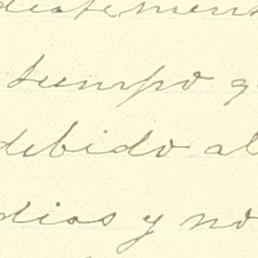 diatement
tiempo q
debido al
dias y no